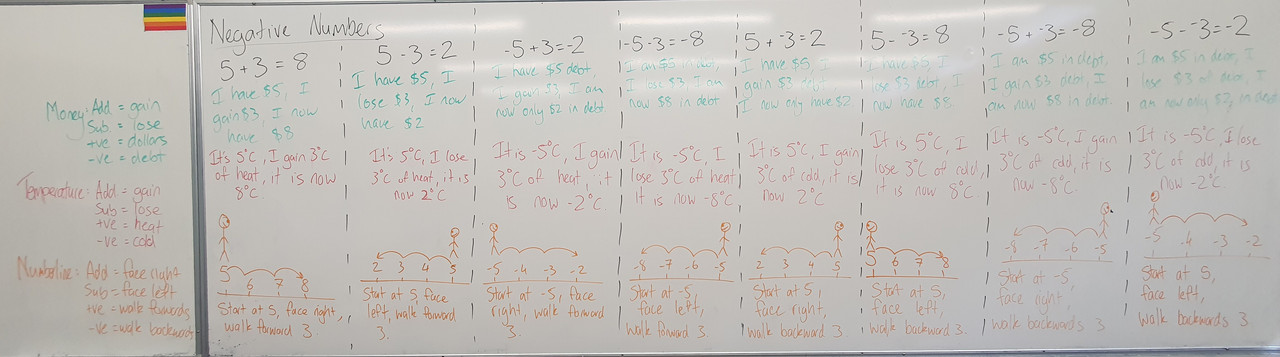 Money: Add = gain
Sub = lose
+ve = dollars
-ve = debt
Temperature: Add = gain
Sub = lose
+ve = heat
-ve = cold
Numberline: Add = face right
Sub = face left
+ve = walk forwards
-ve = walk backwards
Negative Numbers
5 + 3 = 8
I have $5, I
gain $3, I now
have $8
It's 5°C, I gain 3°C
of heat, it is now
8°C.
5 6 7 8
Start at 5, face right,
walk forward 3.
5 - 3 = 2
I have $5, I
lose $3, I now
have $2
It's 5°C, I lose
3°C of heat, it is
now 2°C
2 3 4 5
Start at 5, face
left, walk forward
3.
-5 + 3 = -2
I have $5 debt,
I gain $3, I am
now only $2 in debt
It is -5°C, I gain
3°C of heat, it
is now -2°C
-5 -4 -3 -2
Start at -5, face
right, walk forward
3.
-5 - 3 = -8
I am $5 in debt,
I lose $3, I am
now $8 in debt
It is -5°C, I
lose 3°C of heat
it is now -8°C
-8 -7 -6 -5
Start at -5,
face left,
walk forward 3.
5 + -3 = 2
I have $5, I
gain $3 debt,
I now only have $2.
It is 5°C, I gain
3°C of cold, it is
now 2°C
2 3 4 5
Start at 5,
face right,
walk backward 3.
5 - -3 = 8
I have $5, I
lose $3 debt, I
now have $8.
It is 5°C, I
lose 3°C of cold,
it is now 8°C
5 6 7 8
Start at 5,
face left,
walk backwards 3.
-5 + -3 = -8
I am $5 in debt,
I gain $3 debt, I
am now $8 in debt.
It is -5°C, I gain
3°C of cold, it is
now -8°C.
-8 -7 -6 -5
Start at -5,
face right,
walk backwards 3
-5 - -3 = -2
I am $5 in debt, I
lose $3 of debt, I
am now only $2 in debt
It is -5°C, I lose
3°C of cold, it is
now -2°C.
-5 -4 -3 -2
Start at 5,
face left,
walk backwards 3.